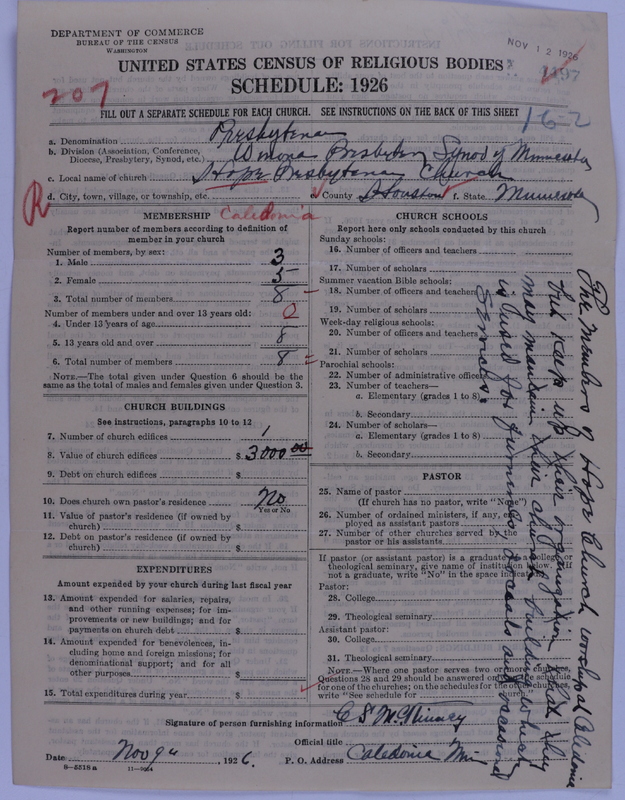 DEPARTMENT OF COMMERCE
BUREAU OF THE CENSUS
WASHINGTON
NOV 12 1926
1197
UNITED STATES CENSUS OF RELIGIOUS BODIES
SCHEDULE: 1926
207
FILL OUT A SEPARATE SCHEDULE FOR EACH CHURCH. SEE INSTRUCTIONS ON THE BACK OF THIS SHEET
16-2
a. Denomination Presbyterian
b. Division (Association, Conference, Diocese, Presbytery, Synod, etc.) Winona Presbytery Synod of Minnesota
c. Local name of church Hope Presbyterian Church
d. City, town, village, or township, etc. County Houston f. State Minnesota
R
MEMBERSHIP Caledonia
Report number of members according to definition of
member in your church
Number of members, by sex:
1. Male 3
2. Female 5
3. Total number of members 8
Number of members under and over 13 years old:
4. Under 13 years of age 0
5. 13 years old and over 8
6. Total number of members 8
NOTE.—The total given under Question 6 should be the
same as the total of males and females given under Question 3.
CHURCH BUILDINGS
See instructions, paragraphs 10 to 12
7. Number of church edifices 1
8. Value of church edifices $ 3000 00
9. Debt on church edifices $
10. Does church own pastor's residence No
Yes or No
11. Value of pastor's residence (if owned by
church) $
12. Debt on pastor's residence (if owned by
church) $
EXPENDITURES
Amount expended by your church during last fiscal year
13. Amount expended for salaries, repairs,
and other running expenses; for im-
provements or new buildings; and for
payments on church debt $
14. Amount expended for benevolences, in-
cluding home and foreign missions; for
denominational support; and for all
other purposes $
15. Total expenditures during year $
CHURCH SCHOOLS
Report here only schools conducted by this church
Sunday schools:
16. Number of officers and teachers
17. Number of scholars
Summer vacation Bible schools:
18. Number of officers and teachers
19. Number of scholars
Week-day religious schools:
20. Number of officers and teachers
21. Number of scholars
Parochial schools:
22. Number of administrative officers
23. Number of teachers—
a. Elementary (grades 1 to 8)
b. Secondary
24. Number of scholars—
a. Elementary (grades 1 to 8)
b. Secondary
PASTOR
25. Name of pastor
(If church has no pastor, write "No")
26. Number of ordained ministers, if any, em-
ployed as assistant pastors
27. Number of other churches served by the
pastor or his assistants
If pastor (or assistant pastor) is a graduate of a college or
theological seminary, give name of institution below. If
not a graduate, write "No" in the space
Pastor:
28. College
29. Theological seminary
Assistant pastor:
30. College
31. Theological seminary
NOTE.—Where one pastor serves two or more churches,
Questions 28 and 29 should be answered on schedule
for one of the churches; on the schedules for the other churches,
write "See schedule for church."
The Members of Hope Church worship at Caledonia
but keep up their organization that they
may maintain their church building which
is used for funerals and occasional
Services.
Signature of person furnishing information
Official title
Date Nov 9th, 1926. P. O. Address Caledonia Min
8-5518 a